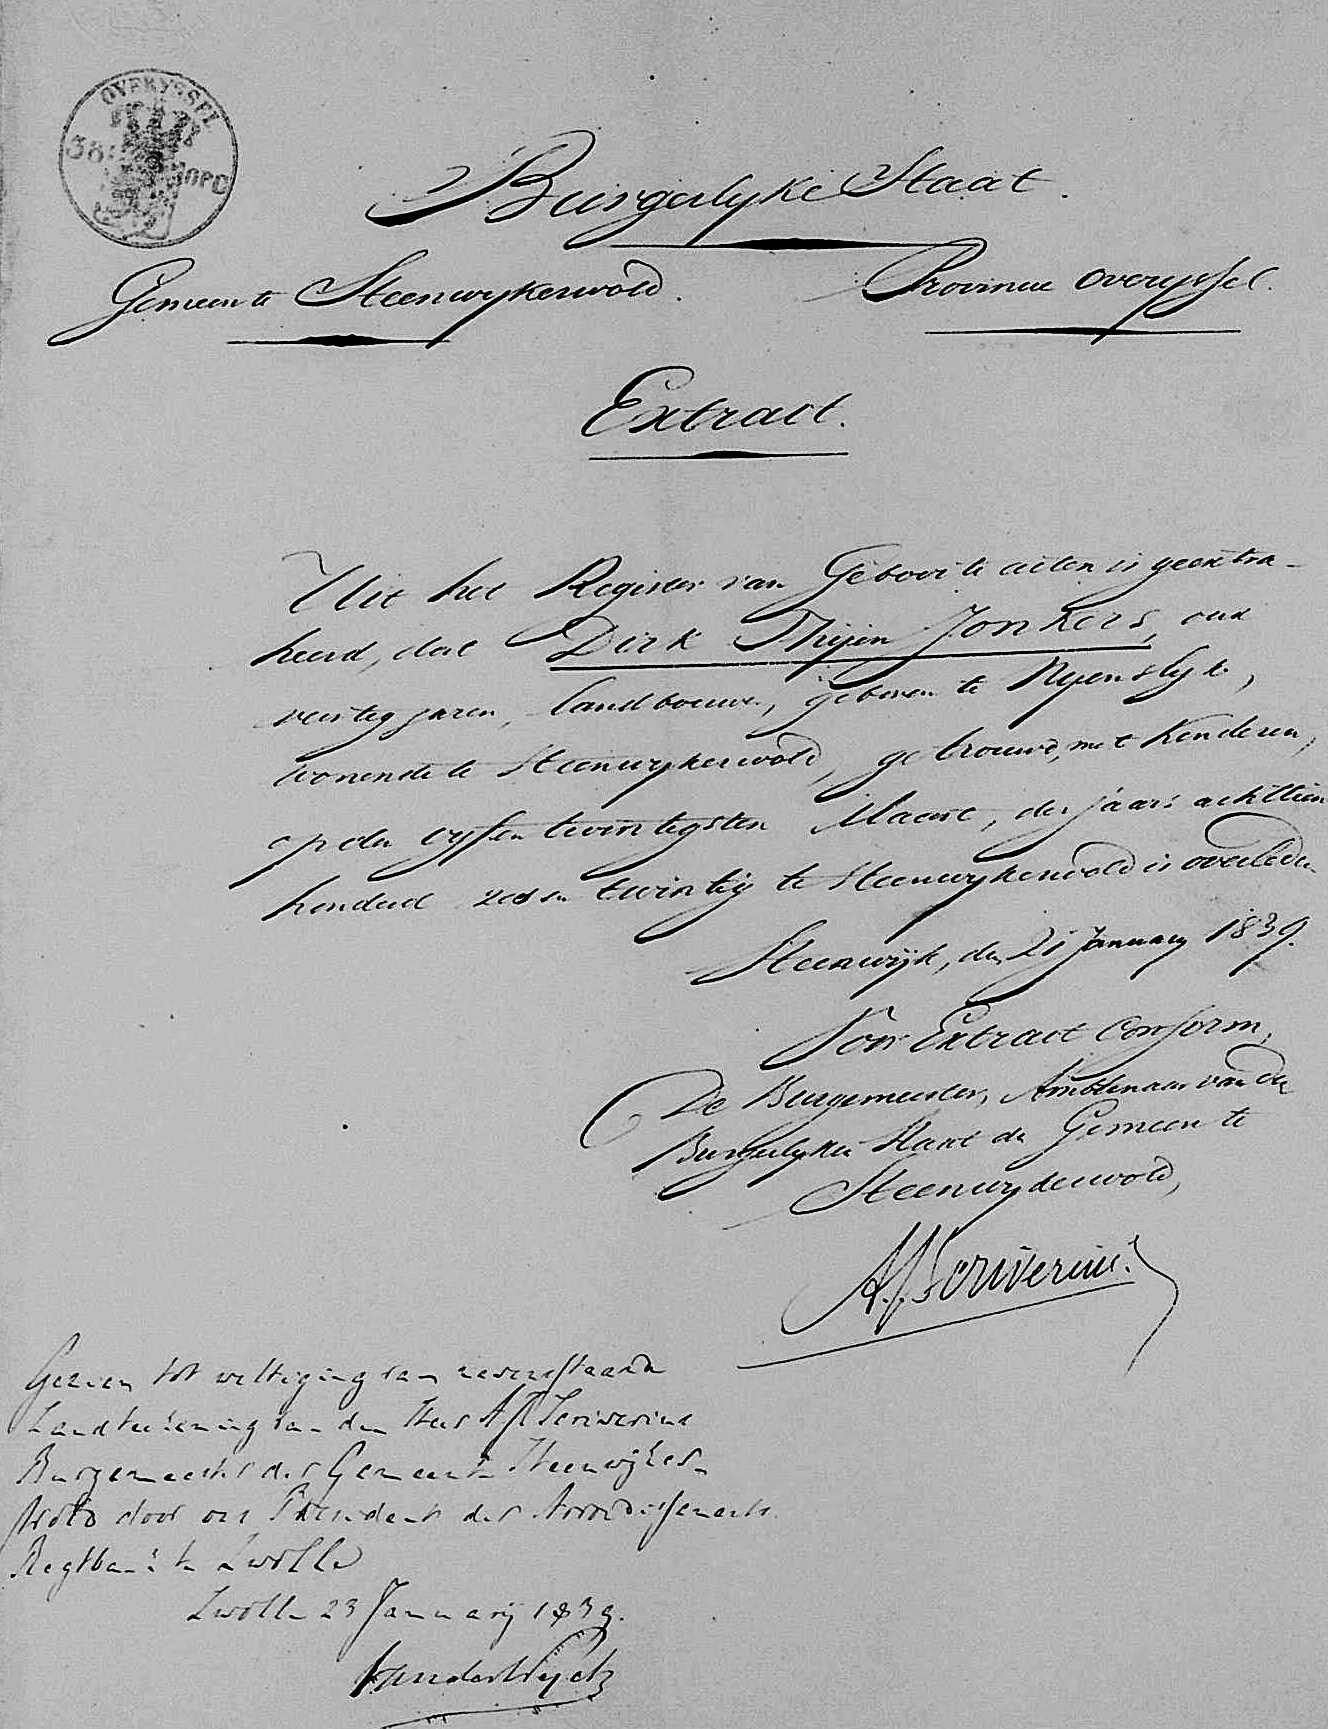 OVERYSSEL
Burgerlyke Staat.
Gemeente Steenwykerwold. Provincie Overyssel.
Extract.
Uit het Register van Geboorte acten is geextra-
heerd, dat Dirk Thijen Jonkers, oud
veertig jaren, landbouwer, geboren te Nyenslyk,
wonende te Steenwykerwold, getrouwd, met kinderen,
op den vyfentwintigsten Maart, des jaars achttien
honderd zes en twintig te Steenwykerwold is overleden
Steenwijk, den 21 January 1839.
Voor Extract Conform,
De Burgemeester, Ambtenaar van den
Burgerlyken Staat der Gemeente
Steenwykerwold,
A. J. Scriverius.
Gezien tot wettiging van nevenstaande
handteekening van den Heer A J Scriverius
Burgemeester der Gemeente Steenwijker-
wold door ons President der Arrondissements
Regtbank te Zwolle
Zwolle 23 Januarij 1839.
van der Wyck